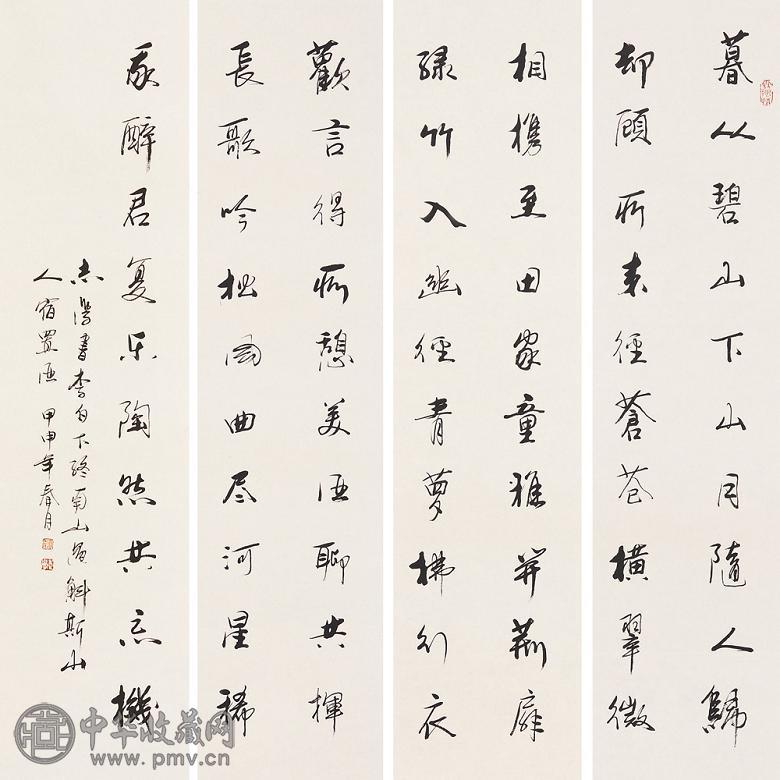 暮从碧山下山月隨人歸
却顧所来徑蒼苍橫翠微
相携至田家童稚开荆扉
绿竹入幽徑青萝拂行衣
歡言得所憩美酒聊共揮
長歌吟松风曲尽河星稀
我醉君复乐陶然共忘機
書李白下终南山過斛斯山
人宿置酒 甲申年春月
中华收藏网
www.pmv.cn